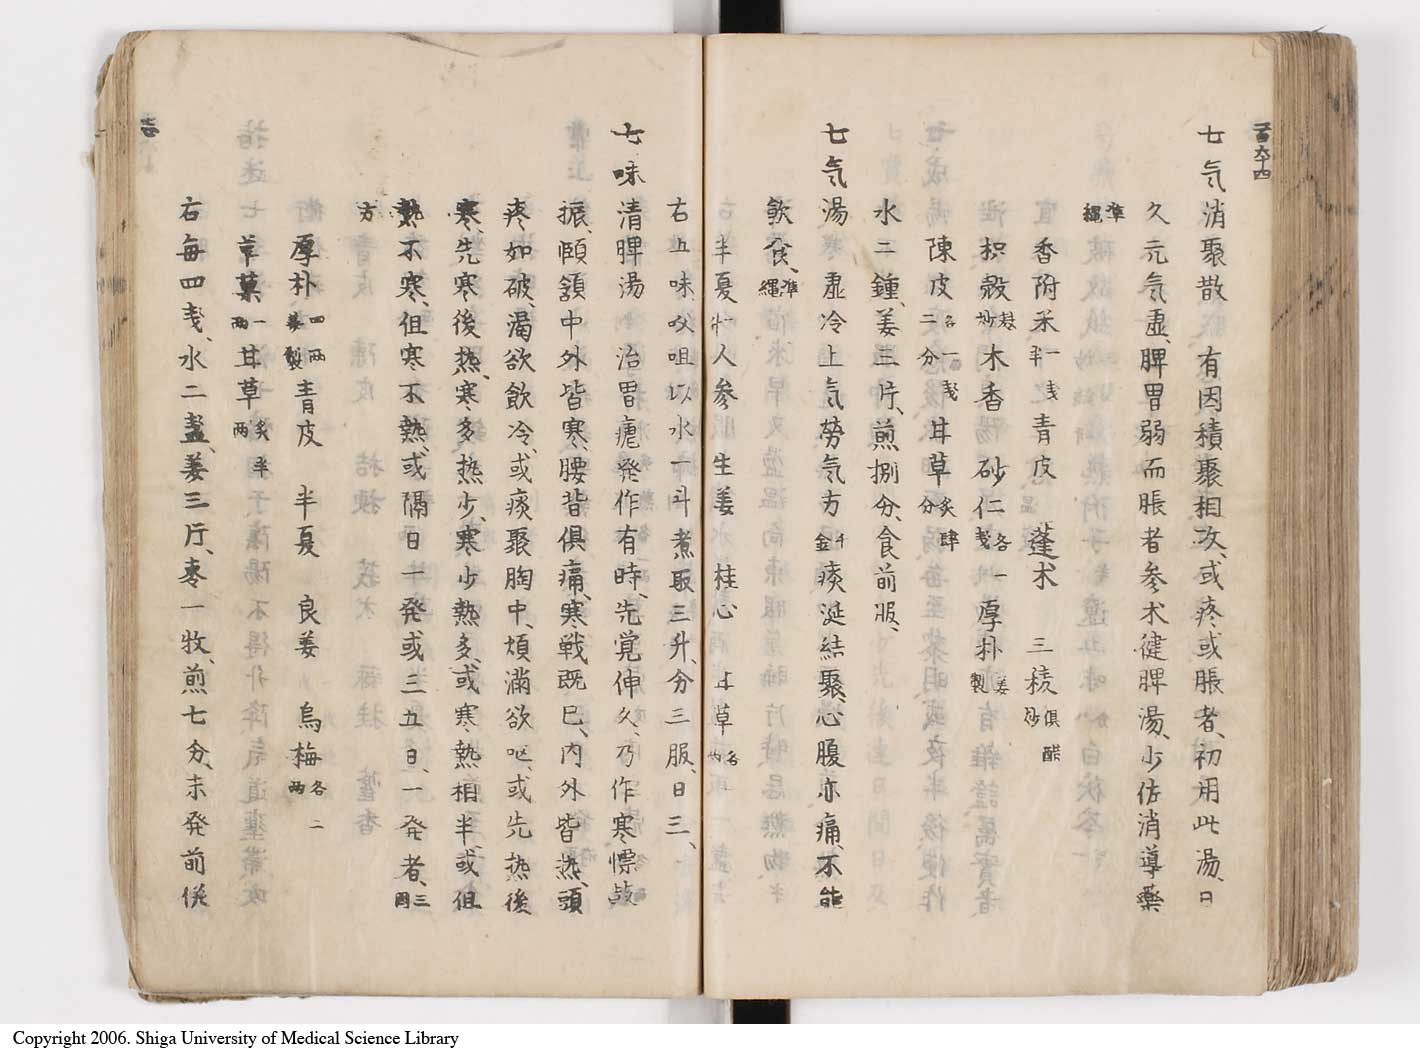 七气消聚散 有因積聚相攻、或疼或脹者、初用此湯、日
久元气虚、脾胃弱而脹者参术健脾湯、少佐消導藥
準繩
香附米一戔半 青皮 蓬术 三稜俱醋炒
枳殻麩炒 木香 砂仁各一戔 厚朴姜製
陳皮各一戔二分 甘草炙肆分
水二鍾、姜三片、煎捌分、食前服、
七气湯 虚冷上气勞气方千金 痰涎結聚、心腹亦痛、不能
飲食、準繩
半夏 人参 生姜 桂心 甘草各
右五味㕮咀以水一斗煮取三升、分三服、日三、
七味清脾湯 治胃瘧発作有時、先覚伸欠、乃作寒慄鼓
振、頤頷中外皆寒、腰背俱痛、寒戦既已、内外皆热、頭
疼如破、渇欲飲冷、或痰聚胸中、煩滿欲呕、或先热後
寒、先寒後热、寒多热少、寒少熱多、或寒熱相半、或但
熱不寒、但寒不熱、或隔日一発或三五日、一発者、三因
方
厚朴四両姜製 青皮 半夏 良姜 烏梅各二両
草菓一両 甘草炙半両
右毎四戔、水二盞、姜三片、枣一枚、煎七分、未発前併
百六十四